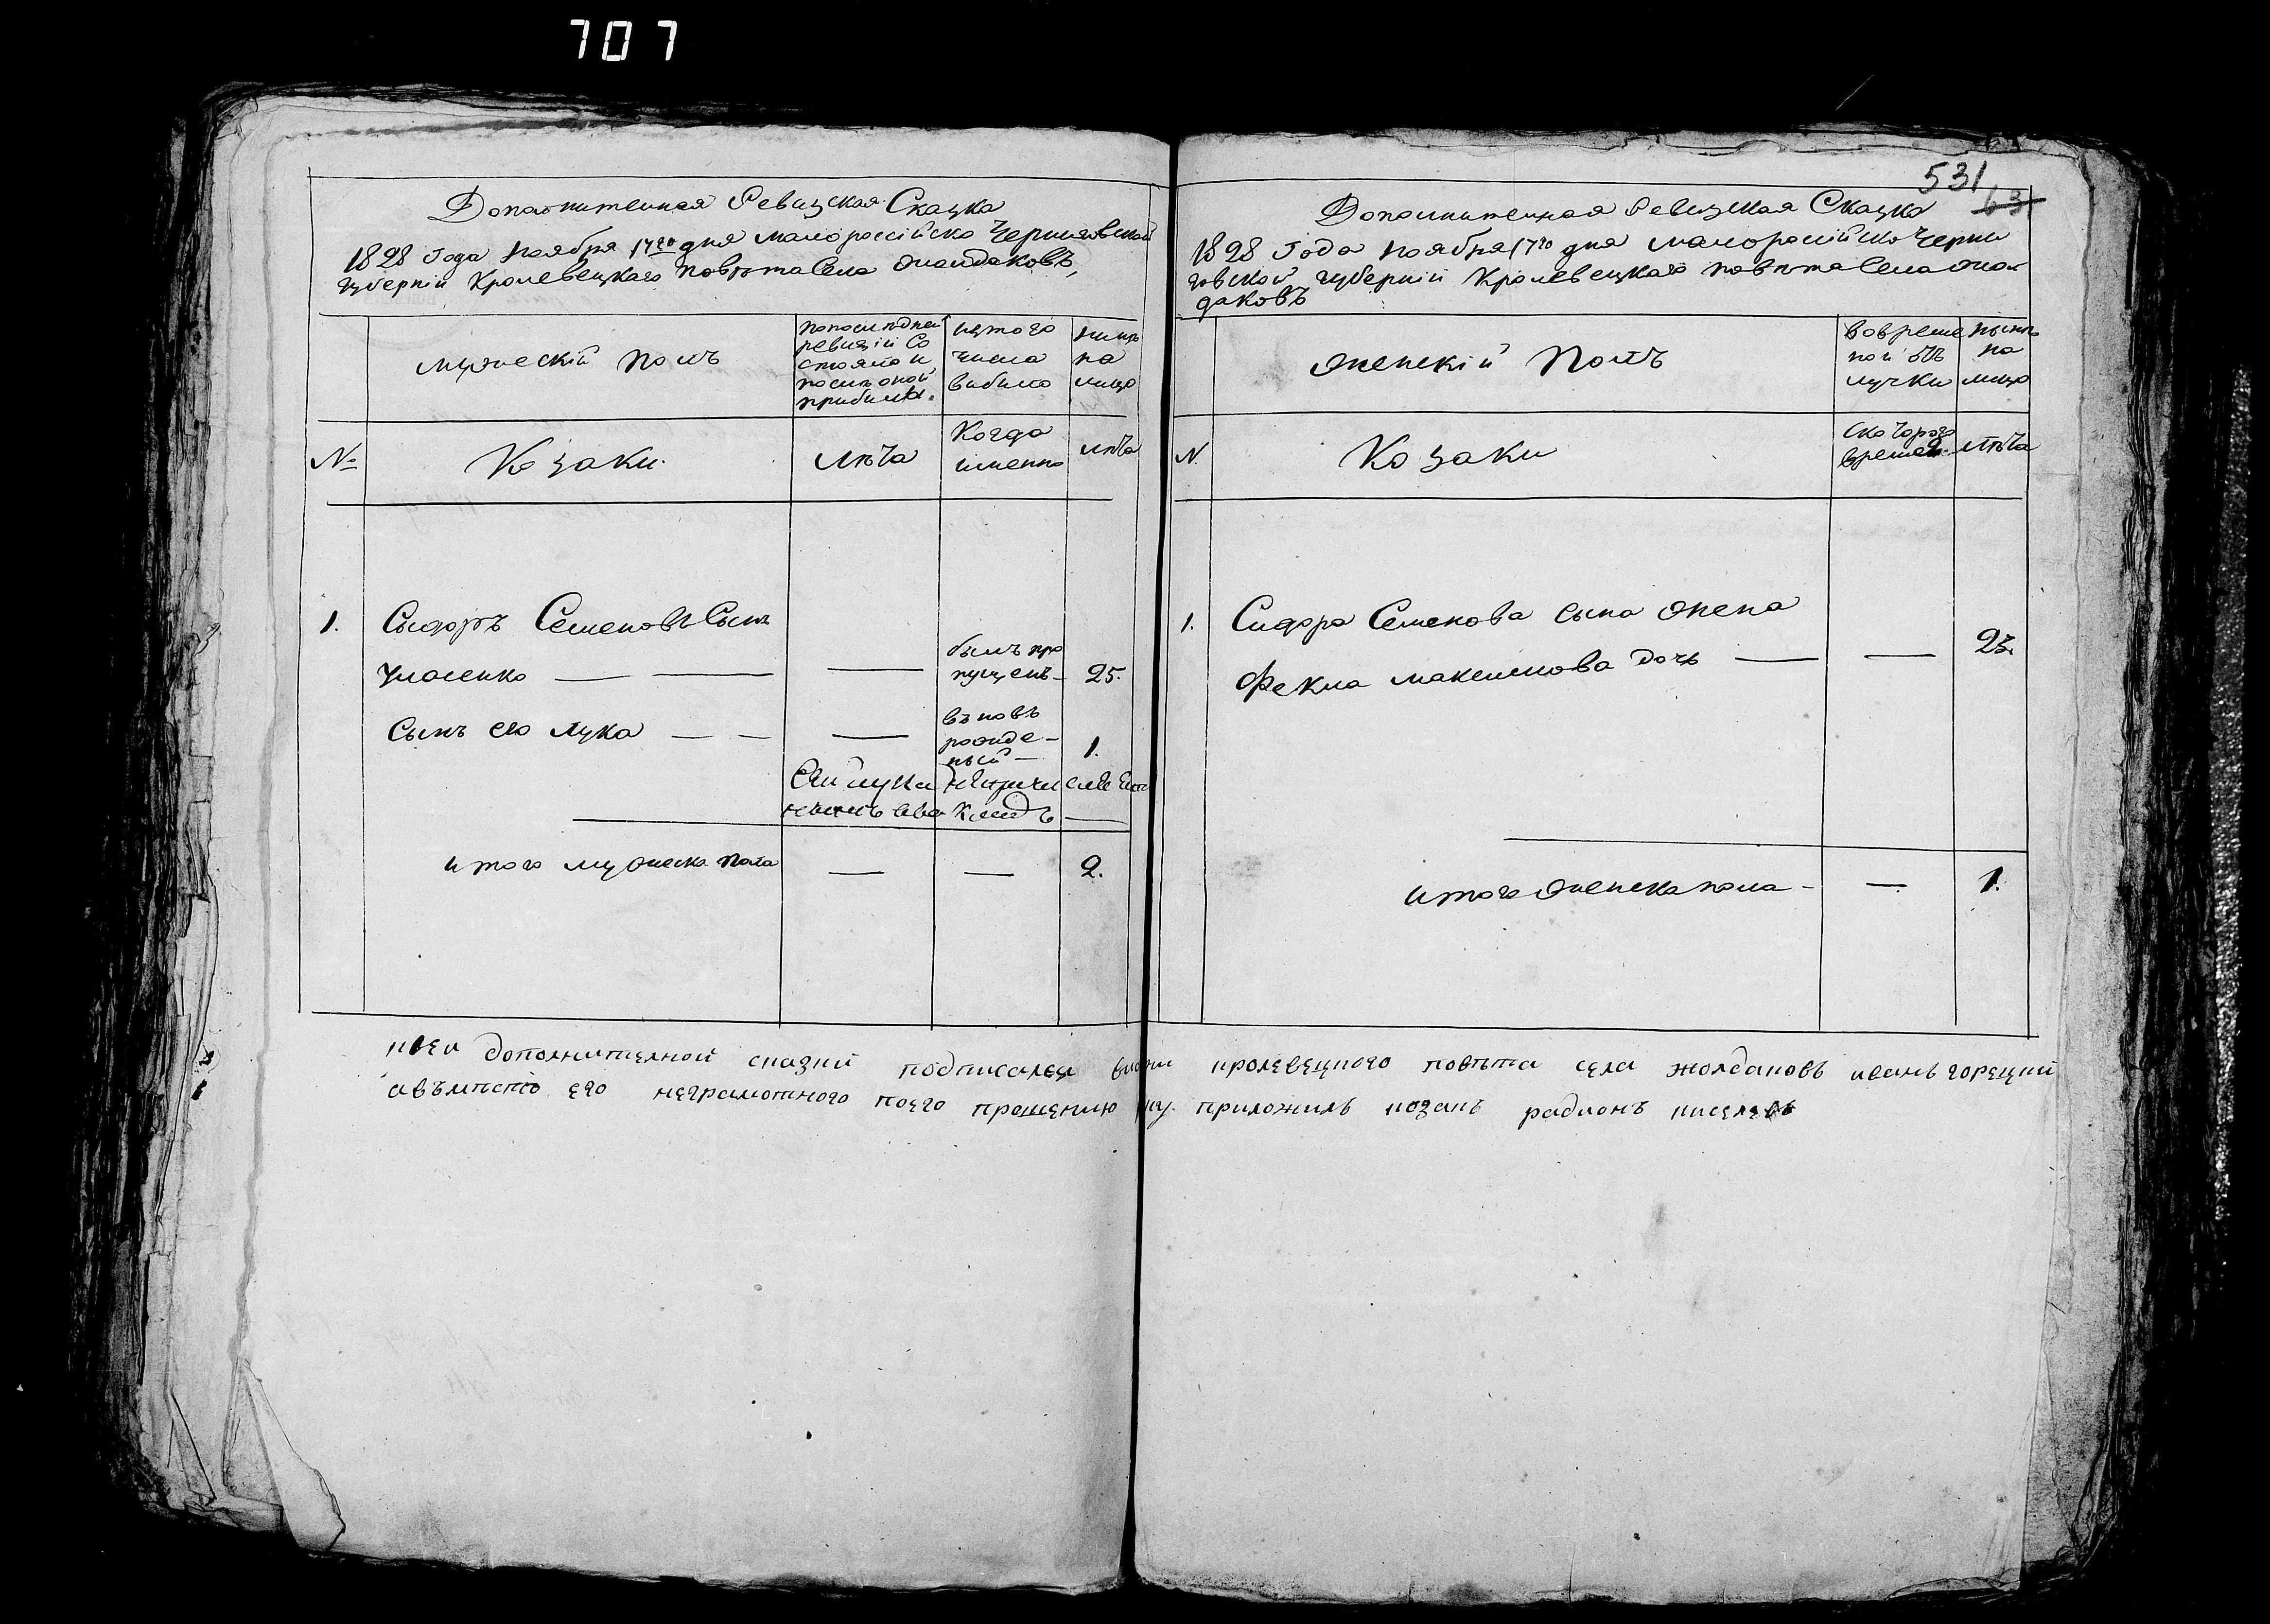 707
Дополнителная Ревизская Сказка
1828 Года Ноября 17го дня Малороссійско Черниговской
губерніи Кролевецкаго повѣта Села Жолдаковъ,
мужескій полъ
попоследней
ревизіи Со
стояло и
после оной
прибило.
изтого
числа
вибило
нинѣ
на
лицо
№
Козаки.
лѣта
Когда
именно
лѣта
1.
Сыдоръ Семеновъ Сынъ
былъ про
пущенъ
25.
Сынъ его Лука
въновь
рожде-
ный
1.
итого мужеска пола
2.
531
63
Дополнителная Ревизская Сказка
1828 Года Ноября 17го дня Малоросійско Черни
говской губерніи Кролевецкаго повѣта Села Жол
даковъ
женскій Полъ
вовреме
ной отъ
лучки
нынѣ
на
лицо
№
Козаки
Скоторого
времен.
лѣта
1.
Сидора Семенова сына жена
Фекла Максимова дочь
23.
итого женска пола
1.
ксеи дополнителной сказки подписался кролевецкого повѣта села жолдаковъ иванъ горецкий
авъмѣсто его неграмотного поего прошению приложилъ козакъ радионъ